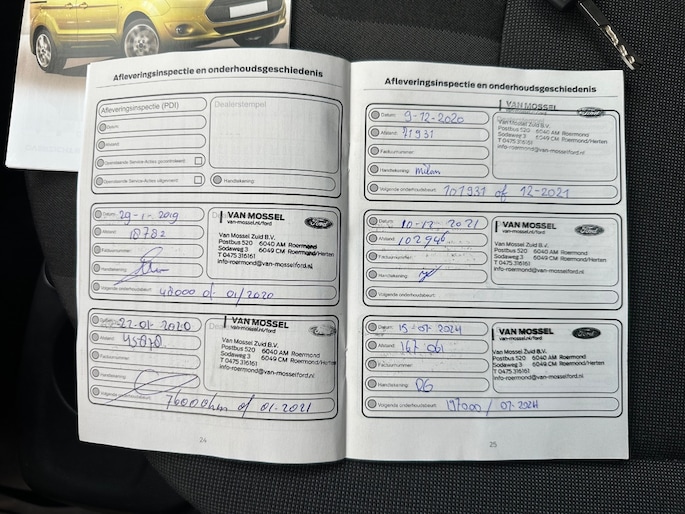 Afleveringsinspectie en onderhoudsgeschiedenis
Afleveringsinspectie (PDI)
Dealerstempel
Datum:
Afstand:
Openstaande Service-Acties gecontroleerd:
Openstaande Service-Acties uitgevoerd:
Handtekening:
Datum: 29-1-2019
Afstand: 18782
Factuurnummer:
Handtekening:
Volgende onderhoudsbeurt: 48000 of 01/2020
VAN MOSSEL
van-mossel.nl/ford
Ford
Van Mossel Zuid B.V.
Postbus 520 6040 AM Roermond
Sodaweg 3 6049 CM Roermond/Herten
T 0475 316161
info-roermond@van-mosselford.nl
Datum: 22-01-2020
Afstand: 45878
Factuurnummer:
Handtekening:
Volgende onderhoudsbeurt: 76000km of 01-2021
VAN MOSSEL
van-mossel.nl/ford
Ford
Van Mossel Zuid B.V.
Postbus 520 6040 AM Roermond
Sodaweg 3 6049 CM Roermond/Herten
T 0475 316161
info-roermond@van-mosselford.nl
24
Afleveringsinspectie en onderhoudsgeschiedenis
Datum: 9-12-2020
Afstand: 71931
Factuurnummer:
Handtekening: Milan
Volgende onderhoudsbeurt: 101931 of 12-2021
VAN MOSSEL
van-mossel.nl/ford
Ford
Van Mossel Zuid B.V.
Postbus 520 6040 AM Roermond
Sodaweg 3 6049 CM Roermond/Herten
T 0475 316161
info-roermond@van-mosselford.nl
Datum: 10-12-2021
Afstand: 102946
Factuurnummer:
Handtekening:
Volgende onderhoudsbeurt:
VAN MOSSEL
van-mossel.nl/ford
Ford
Van Mossel Zuid B.V.
Postbus 520 6040 AM Roermond
Sodaweg 3 6049 CM Roermond/Herten
T 0475 316161
info-roermond@van-mosselford.nl
Datum: 15-07-2024
Afstand: 167 061
Factuurnummer:
Handtekening:
Volgende onderhoudsbeurt: 197000 / 07-2024
VAN MOSSEL
van-mossel.nl/ford
Ford
Van Mossel Zuid B.V.
Postbus 520 6040 AM Roermond
Sodaweg 3 6049 CM Roermond/Herten
T 0475 316161
info-roermond@van-mosselford.nl
25